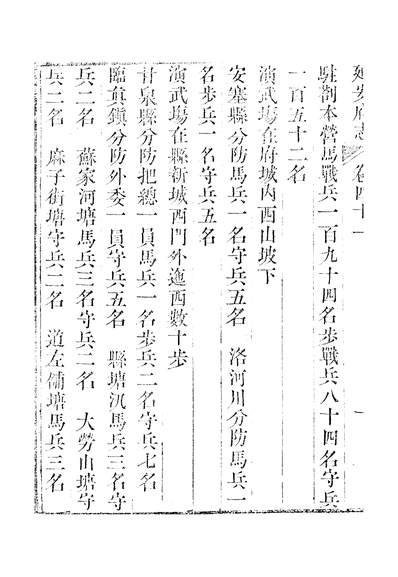 延安府志 卷四十一 一
駐劄本營馬戰兵一百九十四名步戰兵八十四名守兵
一百五十二名
演武場在府城内西山坡下
安塞縣分防馬兵一名守兵五名 洛河川分防馬兵一
名步兵一名守兵五名
演武場在縣新城西門外迤西數十步
甘泉縣分防把總一員馬兵一名步兵二名守兵七名
臨真鎭分防外委一員守兵五名 縣塘汛馬兵三名守
兵二名 蘇家河塘馬兵三名守兵二名 大勞山塘守
兵二名 麻子街塘守兵二名 道左舖塘馬兵三名